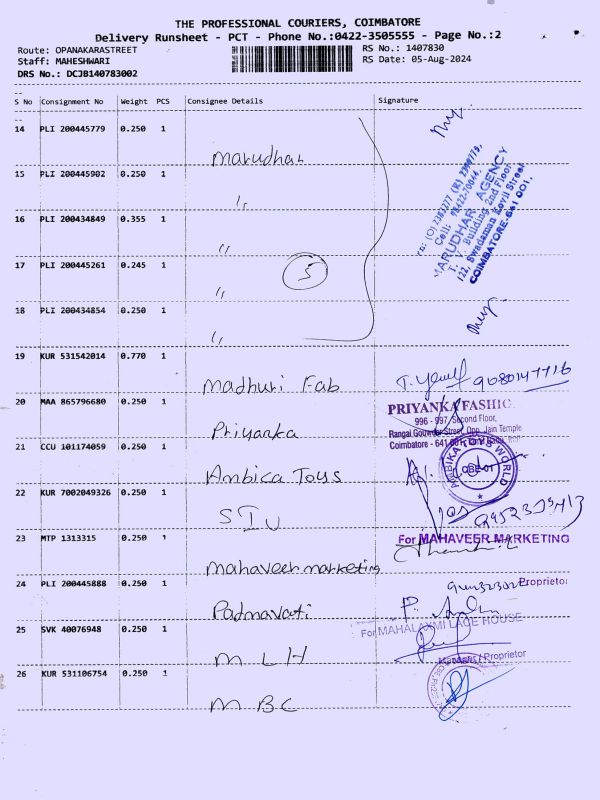 THE PROFESSIONAL COURIERS, COIMBATORE
Delivery Runsheet - PCT - Phone No.:0422-3505555 - Page No.:2
Route: OPANAKARASTREET
RS No.: 1407830
Staff: MAHESHWARI
RS Date: 05-Aug-2024
DRS No.: DCJB140783002
S No Consignment No Weight PCS Consignee Details Signature
14 PLI 200445779 0.250 1
Marudhar
15 PLI 200445902 0.250 1
〃
16 PLI 200434849 0.355 1
〃
17 PLI 200445261 0.245 1
〃 5
18 PLI 200434854 0.250 1
〃
MARUDHAR AGENCY
T. V. Building 2nd Floor
122, Swadaman Kovil Street
COIMBATORE-641 001.
19 KUR 531542014 0.770 1
Madhuri Fab 9080147716
20 MAA 865796680 0.250 1
Priyanka
PRIYANKA FASHIC
996 - 997, Second Floor,
Rangai Gounder Street, Opp. Jain Temple
Coimbatore - 641
21 CCU 101174059 0.250 1
Ambica Toys
AMBIKA TOYS WORLD
CBE-01
22 KUR 7002049326 0.250 1
SIV
23 MTP 1313315 0.250 1
mahaveer marketing
For MAHAVEER MARKETING
Proprietor
24 PLI 200445888 0.250 1
Padmavati
25 SVK 40076948 0.250 1
MLH
For MAHALAXMI LACE HOUSE
Manager / Proprietor
26 KUR 531106754 0.250 1
MBC